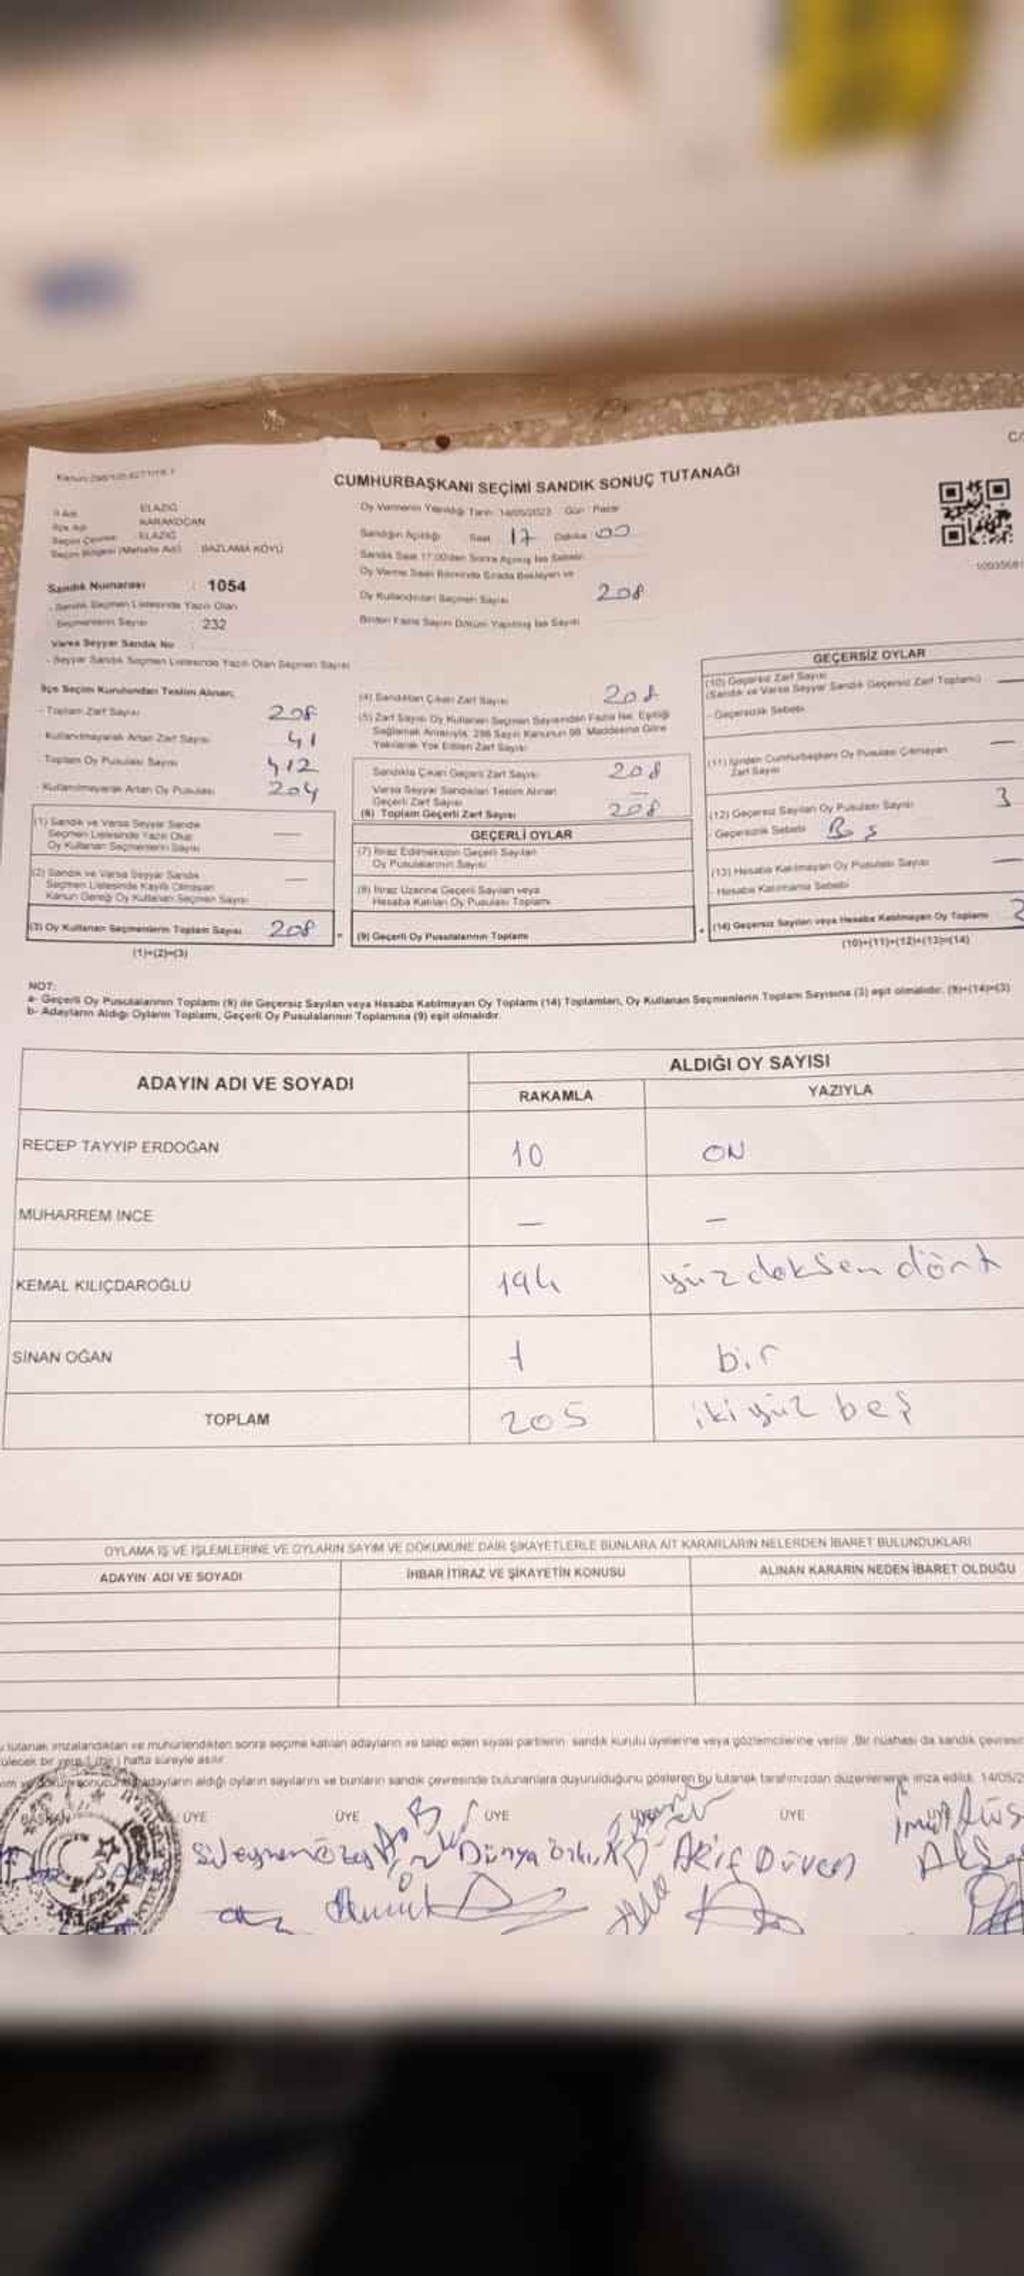 CUMHURBAŞKANI SEÇİMİ SANDIK SONUÇ TUTANAĞI
İl Adı ELAZIĞ
İlçe Adı KARAKOÇAN
Seçim Çevresi ELAZIĞ
Seçim Bölgesi (Mahalle Adı) BAZLAMA KÖYÜ
Sandık Numarası : 1054
- Sandık Seçmen Listesinde Yazılı Olan
Seçmenlerin Sayısı 232
Varsa Seyyar Sandık No
- Seyyar Sandık Seçmen Listesinde Yazılı Olan Seçmen Sayısı
Oy Vermenin Yapıldığı Tarih 14/05/2023 Gün Pazar
Sandığın Açıldığı Saat 17 Dakika 00
Sandık Saat 17:00'den Sonra Açılmış İse Sebebi
Oy Verme Saati Bitiminde Sırada Bekleyen ve
Oy Kullandırılan Seçmen Sayısı 208
Birden Fazla Sayım Döküm Yapılmış İse Sayısı
İlçe Seçim Kurulundan Teslim Alınan;
- Toplam Zarf Sayısı 208
- Kullanılmayarak Artan Zarf Sayısı 41
Toplam Oy Pusulası Sayısı 412
- Kullanılmayarak Artan Oy Pusulası 204
(1) Sandık ve Varsa Seyyar Sandık
Seçmen Listesinde Yazılı Olup
Oy Kullanan Seçmenlerin Sayısı —
(2) Sandık ve Varsa Seyyar Sandık
Seçmen Listesinde Kayıtlı Olmayan
Kanun Gereği Oy Kullanan Seçmen Sayısı —
(3) Oy Kullanan Seçmenlerin Toplam Sayısı 208
(1)+(2)=(3)
(4) Sandıktan Çıkan Zarf Sayısı 208
(5) Zarf Sayısı Oy Kullanan Seçmen Sayısından Fazla İse, Eşitliği
Sağlamak Amacıyla, 298 Sayılı Kanunun 98. Maddesine Göre
Yakılarak Yok Edilen Zarf Sayısı
Sandıkta Çıkan Geçerli Zarf Sayısı 208
Varsa Seyyar Sandıktan Teslim Alınan
Geçerli Zarf Sayısı —
(6) Toplam Geçerli Zarf Sayısı 208
GEÇERLİ OYLAR
(7) İtiraz Edilmeksizin Geçerli Sayılan
Oy Pusulalarının Sayısı
(8) İtiraz Üzerine Geçerli Sayılan veya
Hesaba Katılan Oy Pusulası Toplamı
(9) Geçerli Oy Pusulalarının Toplamı
GEÇERSİZ OYLAR
(10) Geçersiz Zarf Sayısı
(Sandık ve Varsa Seyyar Sandık Geçersiz Zarf Toplamı) —
- Geçersizlik Sebebi
(11) İçinden Cumhurbaşkanı Oy Pusulası Çıkmayan
Zarf Sayısı —
(12) Geçersiz Sayılan Oy Pusulası Sayısı 3
- Geçersizlik Sebebi
(13) Hesaba Katılmayan Oy Pusulası Sayısı —
- Hesaba Katılmama Sebebi
(14) Geçersiz Sayılan veya Hesaba Katılmayan Oy Toplamı
(10)+(11)+(12)+(13)=(14)
NOT:
a- Geçerli Oy Pusulalarının Toplamı (9) ile Geçersiz Sayılan veya Hesaba Katılmayan Oy Toplamı (14) Toplamları, Oy Kullanan Seçmenlerin Toplam Sayısına (3) eşit olmalıdır. (9)+(14)=(3)
b- Adayların Aldığı Oyların Toplamı, Geçerli Oy Pusulalarının Toplamına (9) eşit olmalıdır.
ADAYIN ADI VE SOYADI
ALDIĞI OY SAYISI
RAKAMLA YAZIYLA
RECEP TAYYIP ERDOĞAN 10 ON
MUHARREM INCE — —
KEMAL KILIÇDAROĞLU 194 yüz doksen dört
SINAN OĞAN 1 bir
TOPLAM 205 iki yüz beş
OYLAMA İŞ VE İŞLEMLERİNE VE OYLARIN SAYIM VE DÖKÜMÜNE DAİR ŞİKAYETLERLE BUNLARA AİT KARARLARIN NELERDEN İBARET BULUNDUKLARI
ADAYIN ADI VE SOYADI İHBAR İTİRAZ VE ŞİKAYETİN KONUSU ALINAN KARARIN NEDEN İBARET OLDUĞU
tutanak imzalandıktan ve mühürlendikten sonra seçime katılan adayların ve talep eden siyasi partilerin sandık kurulu üyelerine veya gözlemcilerine verilir. Bir nüshası da sandık çevresi
bir yere 1 (bir) hafta süreyle asılır
adayların aldığı oyların sayılarını ve bunların sandık çevresinde bulunanlara duyurulduğunu gösteren bu tutanak tarafımızdan düzenlenerek imza edildi. 14/05/2
BAŞKAN ÜYE ÜYE ÜYE ÜYE
Dünya Akif Düven